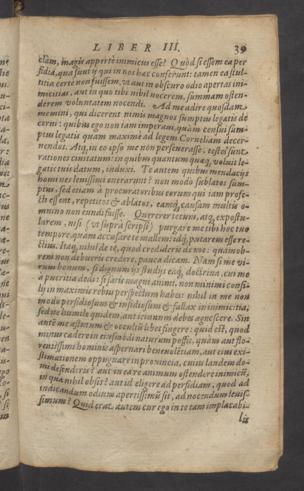 LIBER III. 39
clàm, magis apertè inimicus esse? Quòd si essem ea per
fidia, qua sunt ij qui in nos hæc conferunt: tamen ea stul-
titia certè non fuissem, ut aut in obscuro odio apertas ini
micitias, aut in quo tibi nihil nocerem, summam osten-
derem voluntatem nocendi. Ad me adire quosdam
memini, qui dicerent nimis magnos sumptus legatis de
cerni: quibus ego non tam imperavi, quàm censui sum-
ptus legatis quàm maximè ad legem Corneliam decer-
nendos. Atq, in eo ipso me non perseverasse, testes sunt
rationes civitatum: in quibus quantum quæq, voluit le-
gatis tuis datum, induxi. Te autem quibus mendacijs
homines levissimi onerarunt? non modò sublatos sum-
ptus, sed etiam à procuratoribus eorum qui iam profe-
cti essent, repetitos & ablatos, eamq, causam multis o-
mnino non eundi fuisse. Quererer tecum, atq, expostu-
larem, nisi (ut suprà scripsi) purgare me tibi hoc tuo
tempore, quàm accusare te mallem: idq, putarem esse re-
ctius. Itaq, nihil de te, quòd credideris: de me: quamob-
rem non debueris credere, pauca dicam. Nam si me vi-
rum bonum, si dignum ijs studijs eaq, doctrina, cui me
à pueritia dedi: si satis magni animi, non minimi consi-
lij in maximis rebus perspectum habes: nihil in me non
modò perfidiosum & insidiosum & fallax in amicitia,
sed ne humile quidem aut ieiunum debes agnoscere. Sin
autem me astutum & occultum libet fingere: quid est, quod
minus cadere in eiusmodi naturam possit, quàm aut flo-
rentissimi hominis aspernari benevolentiam, aut eius exi-
stimationem oppugnare in provincia, cuius laudem do-
mi defenderis? aut in ea re animum ostendere inimicum,
in qua nihil obsis? aut id eligere ad perfidiam, quod ad
indicandum odium apertissimum sit, ad nocendum levis-
simum? Quid erat autem cur ego in te tam implacabi-
lis